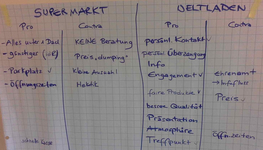 SUPERMARKT
WELTLADEN
Pro
Contra
Pro
Contra
-Alles unter 1 Dach
-günstiger
-Parkplatz
-Öffnungszeiten
KEINE Beratung
Preis„dumping“
kleine Auswahl
Hektik
persönl. Kontakt
persönl. Überzeugung
Info
Engagement
faire Produkte
bessere Qualität
Präsentation
Atmosphäre
Treffpunkt
Ehrenamt
Preis
Öffn.zeiten